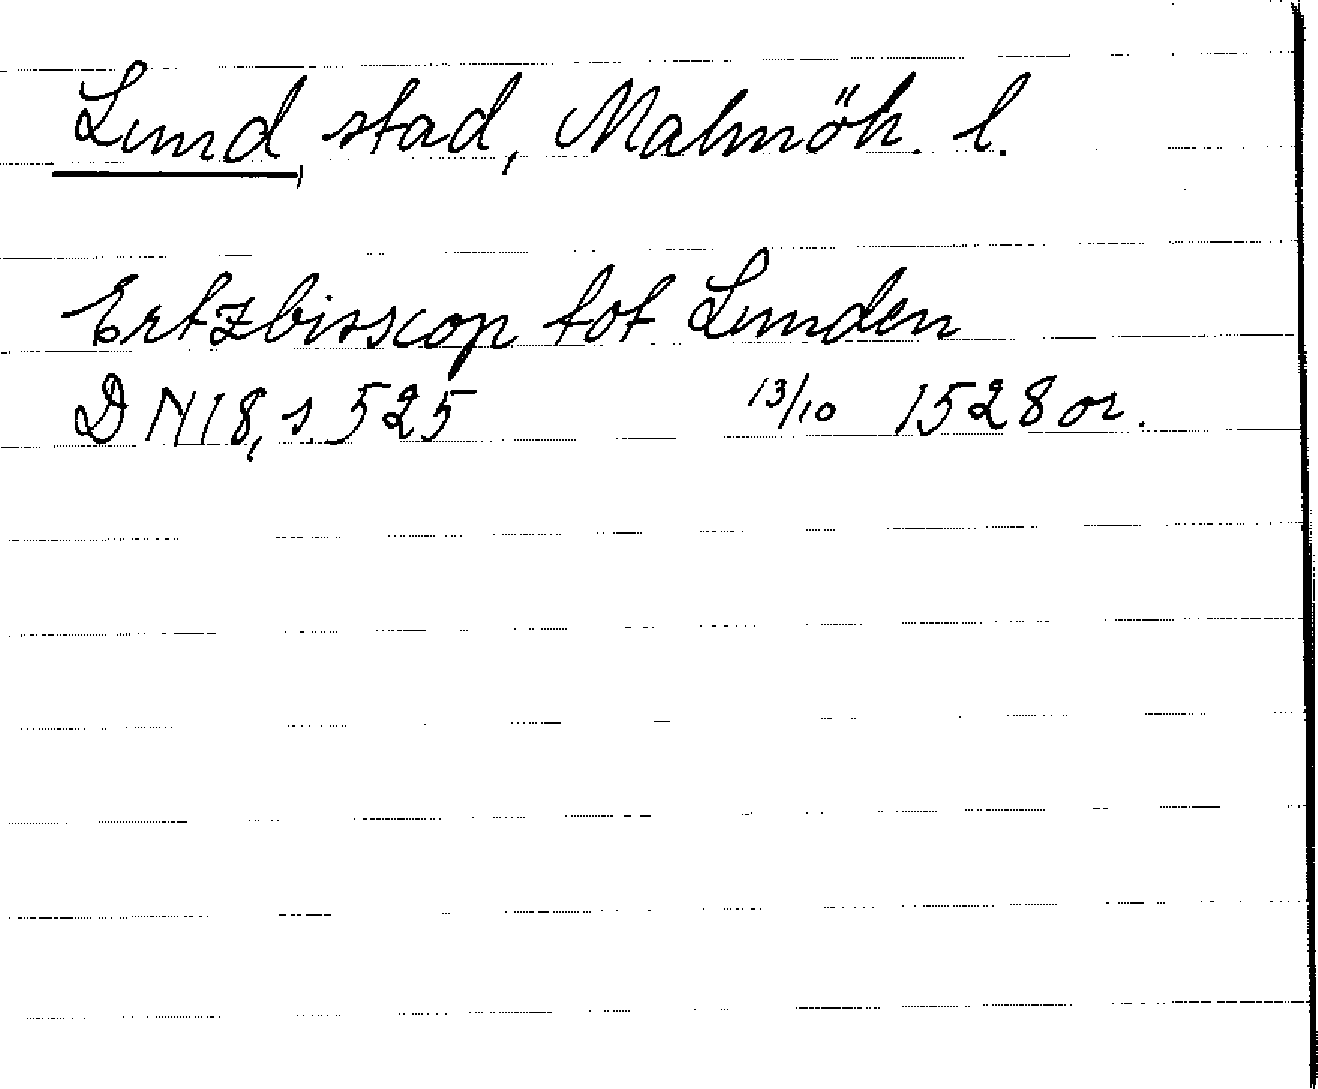 Lund, stad, Malmöh. l.
Ertzbisscop tot Lunden
DN 18, s. 525 13/10 1528 or.